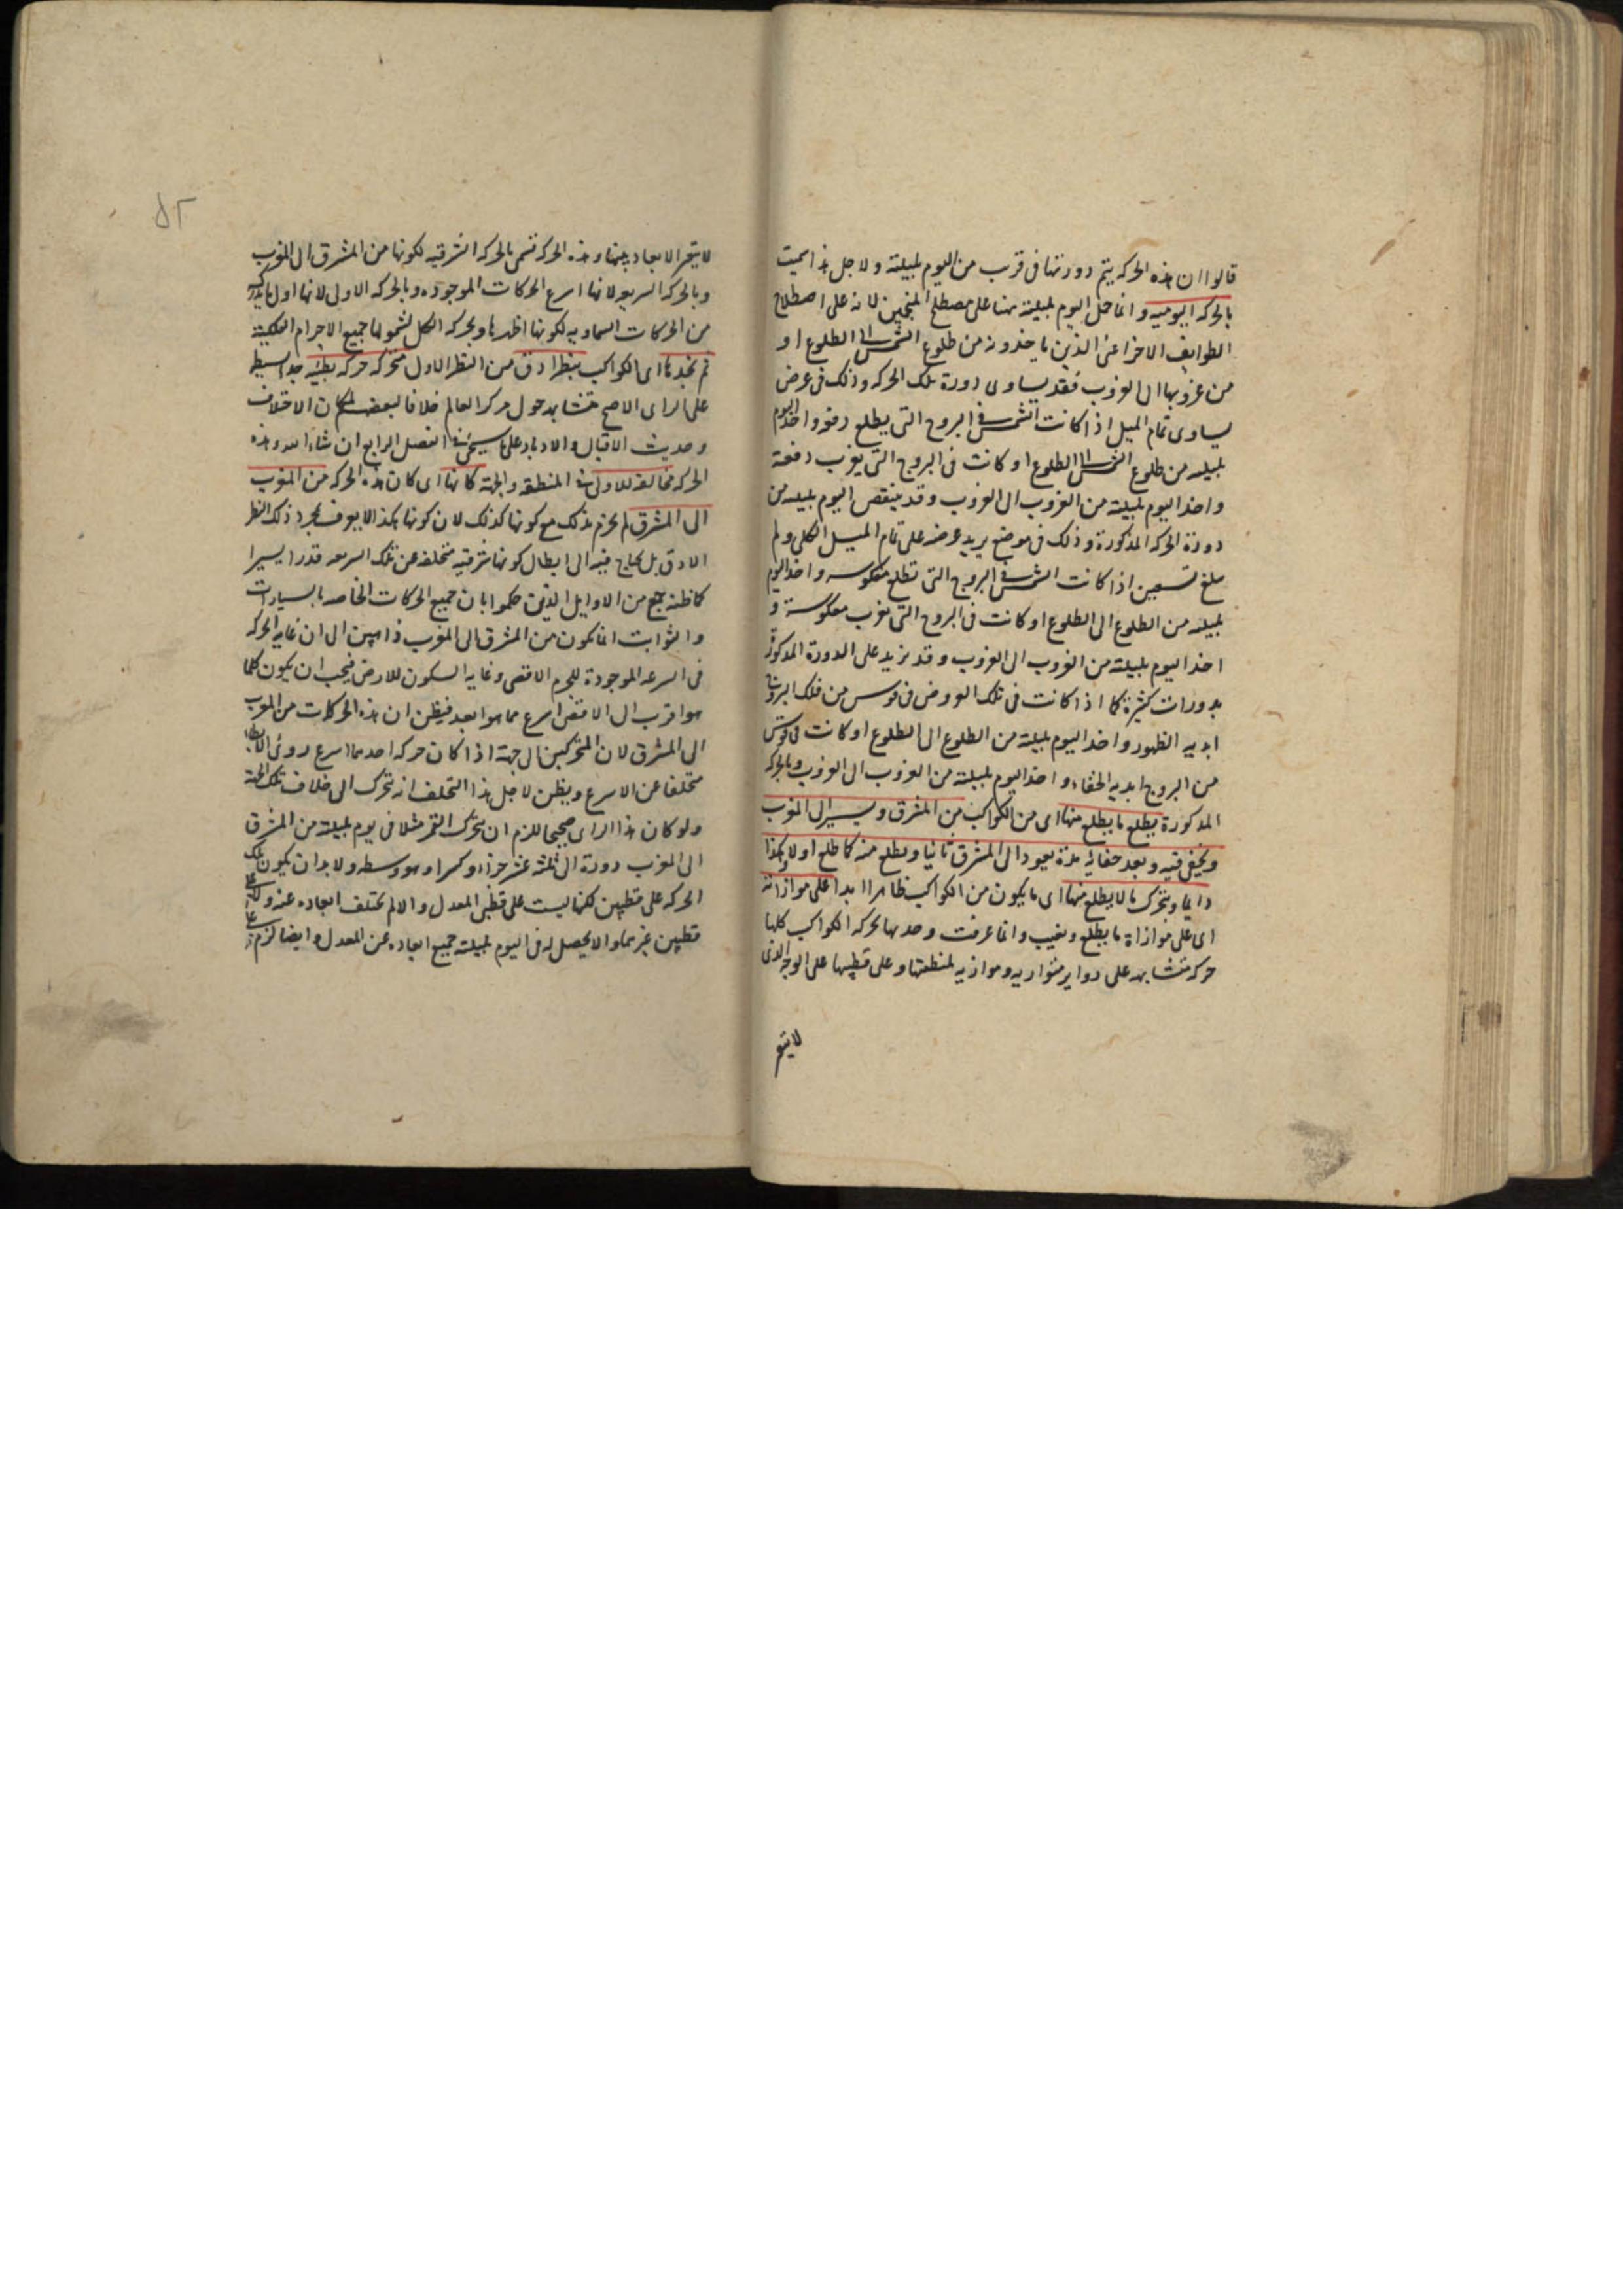 قالوا ان هذه الحركه يتم دورتها فى قرب من اليوم بليلته ولاجل هذا سميت
بالحركه اليوميه وانما حمل اليوم بليلته هنا على مصطلح المنجمين لانه على اصطلاح
الطوايف الاخر اعنى الذين ياخذونه من طلوع الشمس الى الطلوع او
من غروبها الى الغروب فقد يساوى دورة تلك الحركه وذلك فى عرض
يساوى تمام الميل اذا كانت الشمس فى البروج التى يطلع دفعه واخذ اليوم
بليلته من طلوع الشمس الى الطلوع او كانت فى البروج التى يغرب دفعة
واخذ اليوم بليلته من الغروب الى الغروب وقد ينقص اليوم بليلته من
دورة الحركه المذكورة وذلك فى موضع يزيد عرضه على تمام الميل الكلى ولم
يبلغ تسعين اذا كانت الشمس فى البروج التى تطلع معكوسه واخذ اليوم
بليلته من الطلوع الى الطلوع او كانت فى البروج التى تغرب معكوسة و
اخذ اليوم بليلته من الغروب الى الغروب وقد يزيد على الدورة المذكورة
بدورات كثيرة كما اذا كانت فى تلك العروض فى قوس من فلك البروج
ابديه الظهور واخذ اليوم بليلته من الطلوع الى الطلوع او كانت فى قوس
من البروج ابديه الخفاء واخذ اليوم بليلته من الغروب الى الغروب وبالحركه
المذكورة يطلع ما يطلع منها اى من الكواكب من المشرق ويسير الى المغرب
ويخفى فيه وبعد خفائه مدة يعود الى المشرق ثانيا ويطلع منه كما طلع اولا وهكذا
دايما ويتحرك ما لا يطلع منها اى ما يكون من الكواكب ظاهرا ابدا على موازاته
اى على موازاة ما يطلع ويغيب وانما عرفت وحدها بحركه الكواكب كلها
حركه متشابهه على دواير متوازيه وموازيه لمنطقتها وعلى قطبيها على الوجه الذى
لا يتغير
٨٢
لا يتغير الابعاد بينها وهذه الحركه تسمى بالحركه الشرقيه لكونها من المشرق الى المغرب
وبالحركه السريعه لانها اسرع الحركات الموجوده وبالحركه الاولى لانها اول ما يدرك
من الحركات السماويه لكونها اظهرها وبحركه الكل لشمولها جميع الاجرام الفلكية
ثم نجدها اى الكواكب بنظر ادق من النظر الاول متحركه حركه بطيئه جدا بسيطه
على الراى الاصح متشابهه حول مركز العالم خلافا لبعضهم لمكان الاختلاف
وحديث الاقبال والادبار على ما سيجئ فى الفصل الرابع ان شاء الله وهذه
الحركه مخالفه للاولى فى المنطقه والجهة كانها اى كان هذه الحركه من المغرب
الى المشرق لم يجزم بذلك مع كونها كذلك لان كونها هكذا لا يعرف بمجرد ذلك النظر
الادق بل يحتاج فيه الى ابطال كونها شرقيه متخلفه عن تلك السرعه قدرا يسيرا
كما ظنه جمع من الاوايل الذين حكموا بان جميع الحركات الخاصه بالسيارات
والثوابت انما يكون من المشرق الى المغرب ذاهبين الى ان غايه الحركه
فى السرعه الموجودة للجرم الاقصى وغايه السكون للارض فيجب ان يكون كلما
هو اقرب الى الاقصى اسرع مما هو ابعد فيظن ان هذه الحركات من المغرب
الى المشرق لان المتحركين الى جهة اذا كان حركه احدهما اسرع روئى الابطا
متخلفا عن الاسرع ويظن لاجل هذا التخلف انه يتحرك الى خلاف تلك الجهة
ولو كان هذا الراى صحيحا للزم ان يتحرك القمر مثلا فى يوم بليلته من المشرق
الى المغرب دورة الا ثلثة عشر جزءا وكسرا وهو وسطه ولا بد ان يكون تلك
الحركه على قطبين لكنها ليست على قطبى المعدل والا لم تختلف ابعاده عنه ولا على
قطبين غيرهما والا يحصل له فى اليوم بليلته جميع ابعاده عن المعدل وايضا لزم